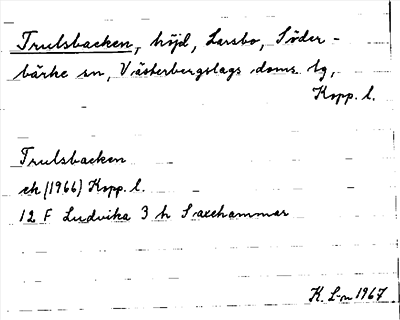 Trulsbacken, höjd, Larsbo, Söder-
bärke sn, Västerbergslags doms. tg,
Kopp. l.
Trulsbacken
ek (1966) Kopp. l.
12 F Ludvika 3 h Saxehammar
K. L-n 1967